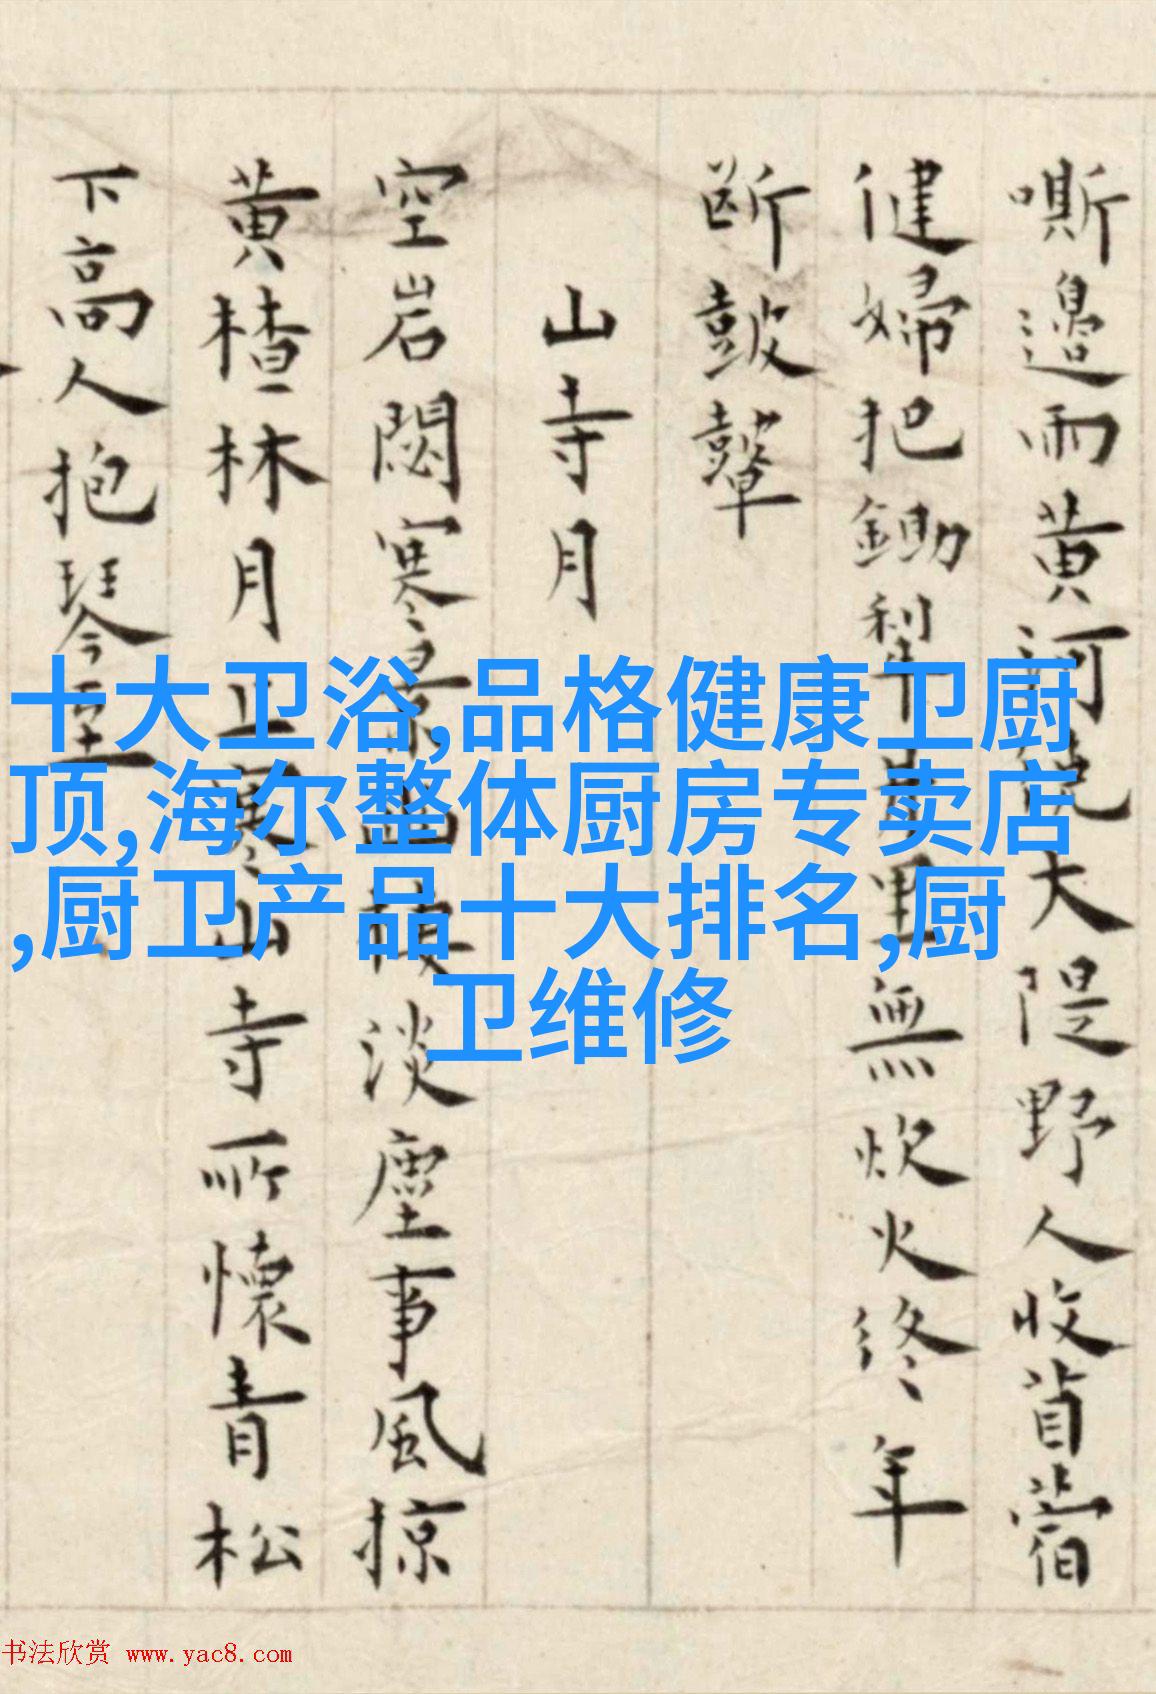 嘶邊雨黃河兩岸大隄野人收苜蓿
健婦把鋤犁牛羊無炊火終年
斷鼓鼙
山寺月
空岩閟寒景幽淡塵事風掠
黃楂林月上寒山寺所懷青松
下高人抱琴至
十大卫浴,品格健康卫厨
顶,海尔整体厨房专卖店
,厨卫产品十大排名,厨
卫维修
书法欣赏 www.yac8.com